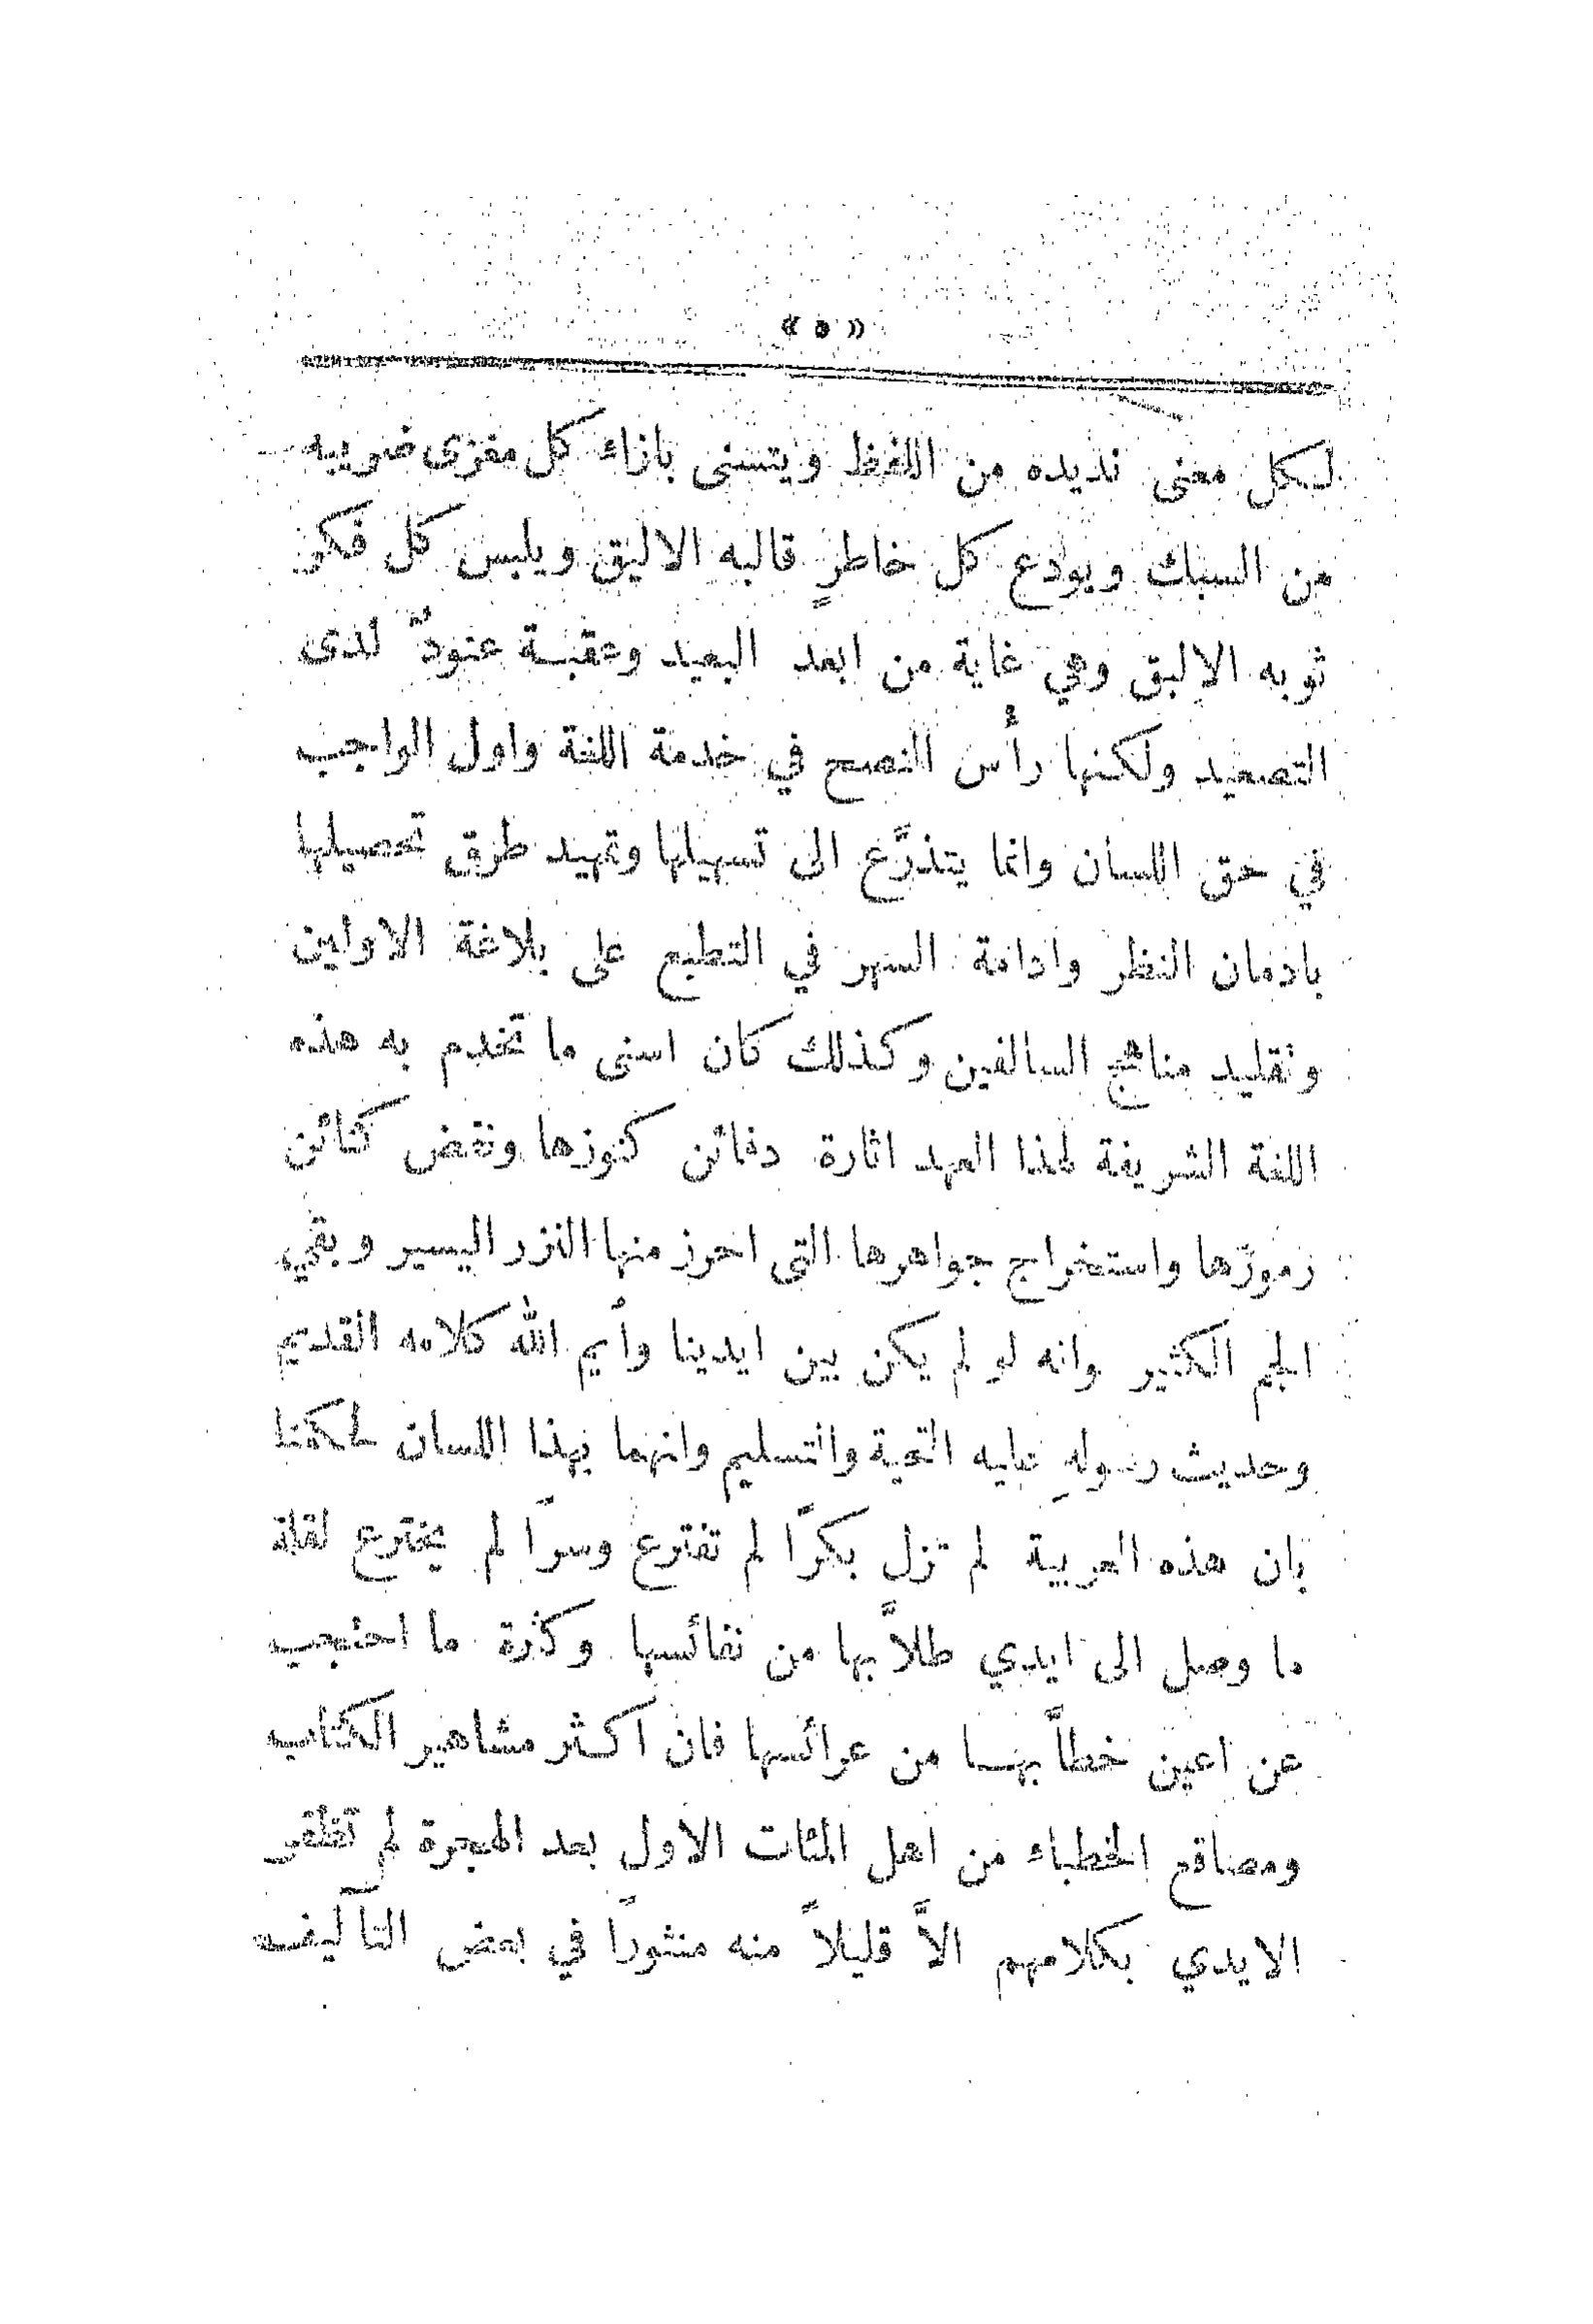 « ٥ »
لكل معنى نديده من اللفظ ويتسنى بازاء كل مغزى ضريبه
من السبك ويودع كل خاطرٍ قالبه الاليق ويلبس كل فكر
ثوبه الالبق وهي غاية من ابعد البعيد وعقبة عنودٌ لدى
التصعيد ولكنها رأس النصح في خدمة اللغة واول الواجب
في حق اللسان وانما يتذرَّع الى تسهيلها وتمهيد طرق تحصيلها
بادمان النظر وادامة السهر في التطبع على بلاغة الاولين
وتقليد مناهج السالفين وكذلك كان اسنى ما تخدم به هذه
اللغة الشريفة لهذا العهد اثارة دفائن كنوزها ونفض كنائن
رموزها واستخراج جواهرها التي احرز منها النزر اليسير وبقي
الجم الكثير وانه لو لم يكن بين ايدينا وأيم الله كلامه القديم
وحديث رسولهِ عليه التحية والتسليم وانهما بهذا اللسان لحكمنا
بان هذه العربية لم تزل بكرًا لم تفترع وسرًا لم يخترع لقلة
ما وصل الى ايدي طلاَّبها من نفائسها وكثرة ما احتجب
عن اعين خطاَّبها من عرائسها فان اكثر مشاهير الكتاب
ومصاقع الخطباء من اهل المئات الاول بعد الهجرة لم تظفر
الايدي بكلامهم الاَّ قليلاً منه منثورًا في بعض التآليف